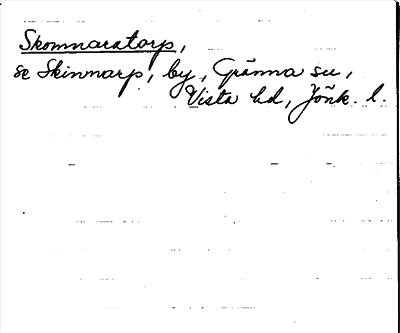 Skomnaratorp,
se Skinnarp, by, Gränna sn,
Vista hd, Jönk. l.